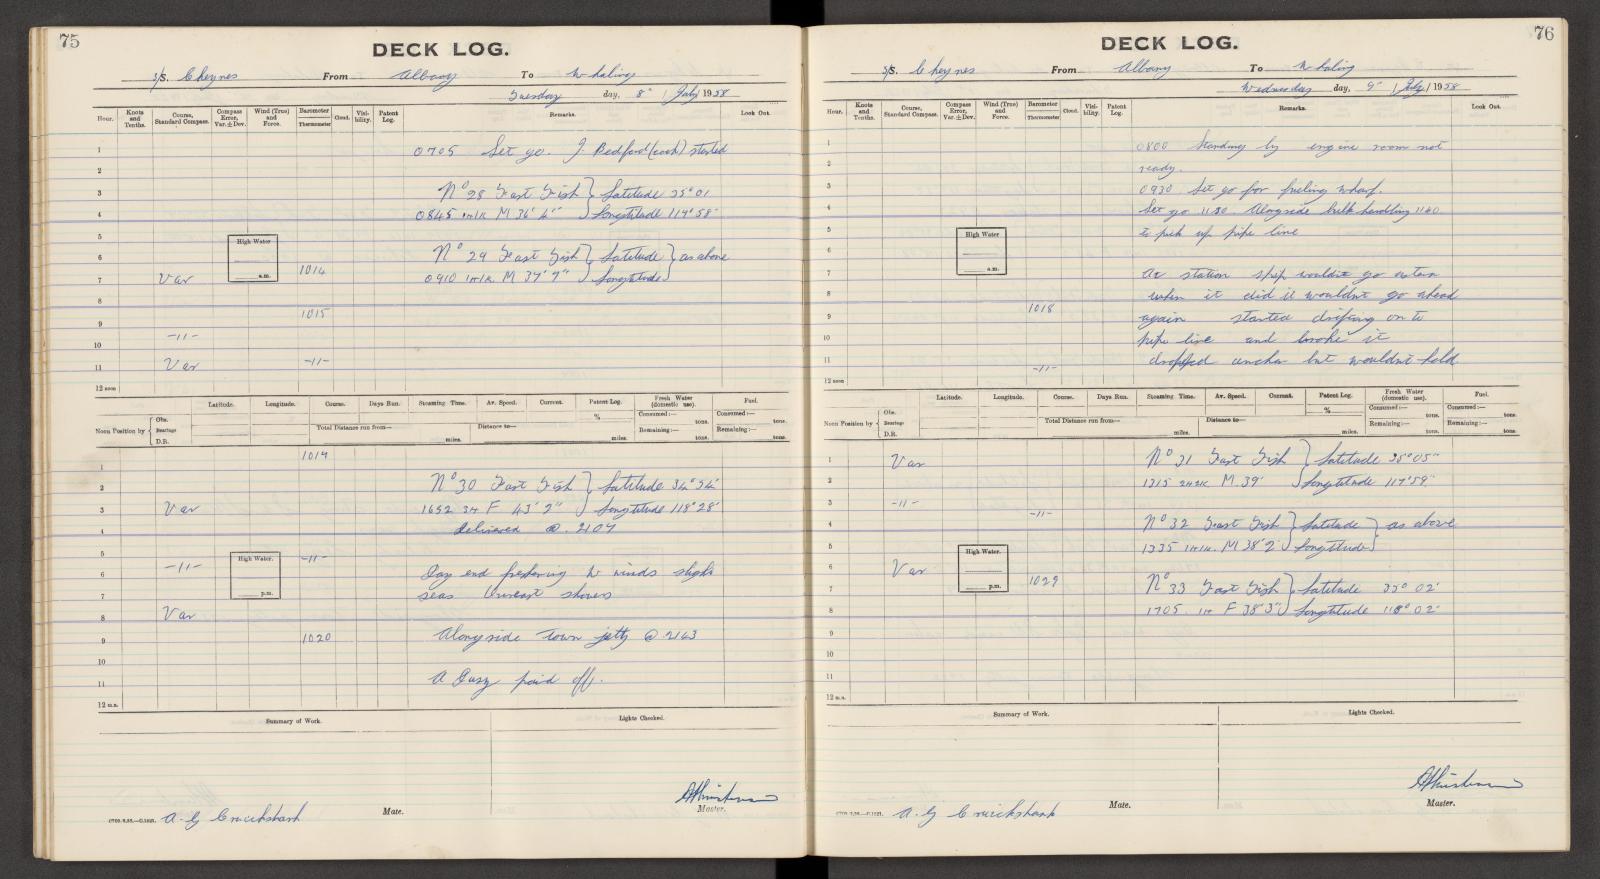 75
DECK LOG.
S/S. Cheynes From Albany To Whaling
Tuesday day, 8" / July / 1958
Hour. Knots and Tenths. Course, Standard Compass. Compass Error, Var. ± Dev. Wind (True) and Force. Barometer Thermometer Cloud. Visibility. Patent Log. Remarks. Look Out.
1 0705 Set go. J. Bedford (cook) started
2
3 No 28 Fast Fish } Latitude 35° 01
4 0845 1M1K M 36' 4" } Longtitude 117° 58'
5 High Water
6 No 29 Fast Fish } Latitude } as above
7 Var a.m. 1014 0910 1M1K M 37' 7" } Longtitude
8
9 1015
10 -11-
11 Var -11-
12 noon
Latitude. Longitude. Course. Days Run. Steaming Time. Av. Speed. Current. Patent Log. Fresh Water (domestic use). Fuel.
Noon Position by { Obs. Bearings D.R. Total Distance run from— miles. Distance to— miles. % Consumed:— tons. Remaining:— tons. Consumed:— tons. Remaining:— tons.
1 1019
2 No 30 Fast Fish } Latitude 34° 54'
3 Var 1652 3H F 43' 2" } Longtitude 118° 28'
4 delivered @ 2107
5 High Water. -11-
6 -11- Day end freshening W winds slight
7 p.m. seas Overcast showers
8 Var
9 1020 Alongside Town jetty @ 2143
10
11 paid off.
12 m.n.
Summary of Work. Lights Checked.
A. G Cruickshank Mate. Master.
76
DECK LOG.
S/S. Cheynes From Albany To Whaling
Wednesday day, 9" / July / 1958
Hour. Knots and Tenths. Course, Standard Compass. Compass Error, Var. ± Dev. Wind (True) and Force. Barometer Thermometer Cloud. Visibility. Patent Log. Remarks. Look Out.
1 0800 Standing by engine room not
2 ready.
3 0930 Set go for fueling wharf.
4 Set go 1130 Alongside bulk handling 1140
5 High Water to pick up pipe line
6
7 a.m. At station ship wouldnt go astern
8 when it did it wouldnt go ahead
9 1018 again started drifting on to
10 pipe line and broke it
11 -11- dropped anchor but wouldnt hold
12 noon
Latitude. Longitude. Course. Days Run. Steaming Time. Av. Speed. Current. Patent Log. Fresh Water (domestic use). Fuel.
Noon Position by { Obs. Bearings D.R. Total Distance run from— miles. Distance to— miles. % Consumed:— tons. Remaining:— tons. Consumed:— tons. Remaining:— tons.
1 Var No 31 Fast Fish } Latitude 35° 05"
2 1315 2H2K M. 39' } Longtitude 117° 59"
3 -11- -11-
4 No 32 Fast Fish } Latitude } as above
5 High Water. 1335 1H1K. M 38' 2" } Longtitude
6 Var 1029
7 p.m. No 33 Fast Fish } Latitude 35° 02'
8 1705 1H F 38' 3" } Longtitude 118° 02'
9
10
11
12 m.n.
Summary of Work. Lights Checked.
A. G Cruickshank Mate. Master.